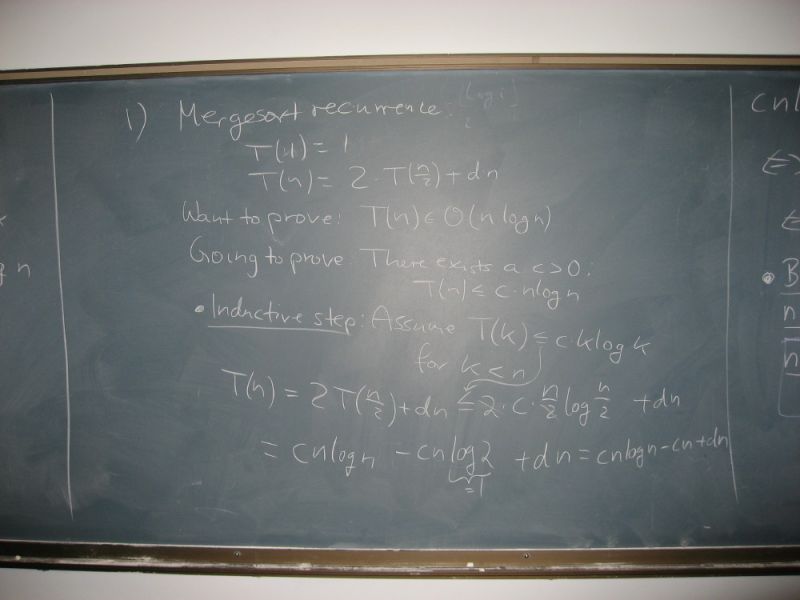 1) Mergesort recurrence:
T(1) = 1
T(n) = 2·T(n/2) + dn
Want to prove: T(n) ∈ O(n log n)
Going to prove: There exists a c > 0:
T(n) ≤ c·n log n
• Inductive step: Assume T(k) ≤ c·k log k
for k < n
T(n) = 2T(n/2) + dn ≤ 2·c·n/2 log n/2 + dn
= cn log n - cn log 2 + dn = cn log n - cn + dn
=1
n
cn
• B
n
n